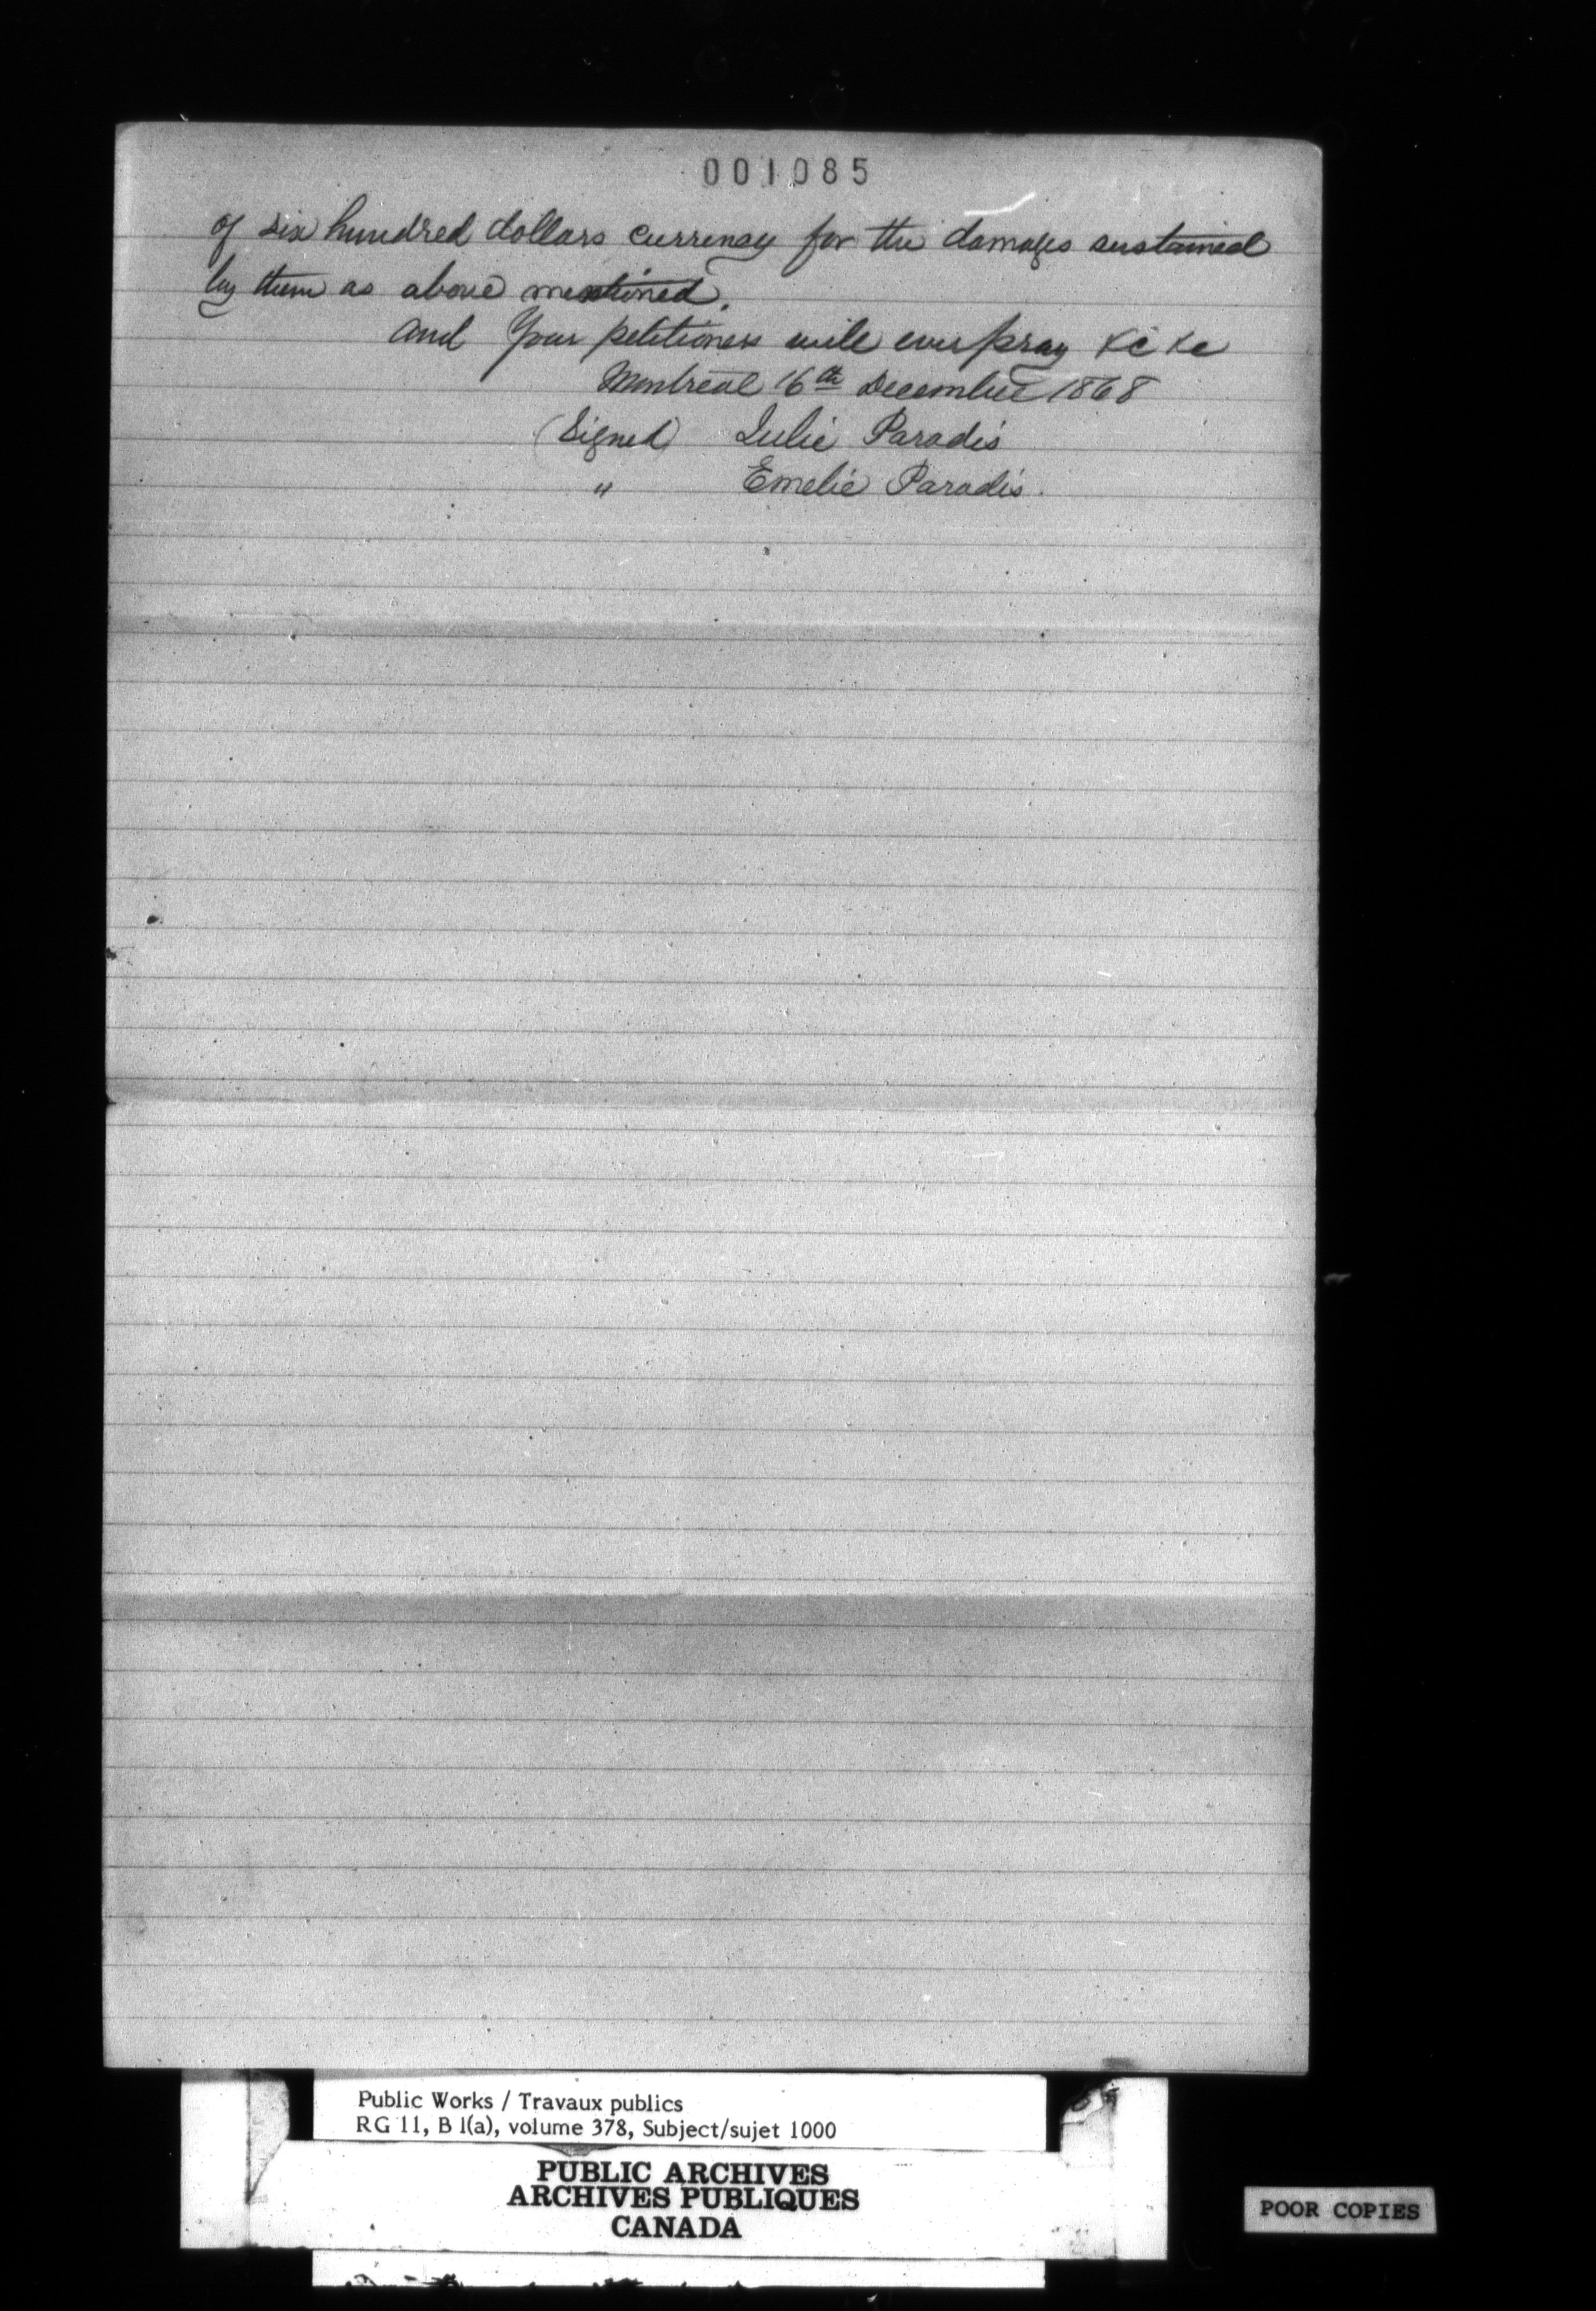 001085
of six hundred dollars currency for the damages sustained
by them as above mentioned.
and Your petitioners will ever pray &c &c
Montreal 16th December 1868
(Signed) Julie Paradis
" Emelie Paradis.
Public Works / Travaux publics
RG 11, B 1(a), volume 378, Subject/sujet 1000
PUBLIC ARCHIVES
ARCHIVES PUBLIQUES
CANADA
POOR COPIES